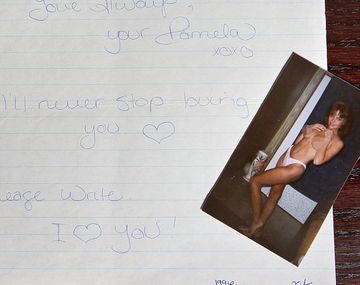 Love Always,
your Pamela
xoxo
I'll never stop loving
you ♡
lease write.
I ♡ you!